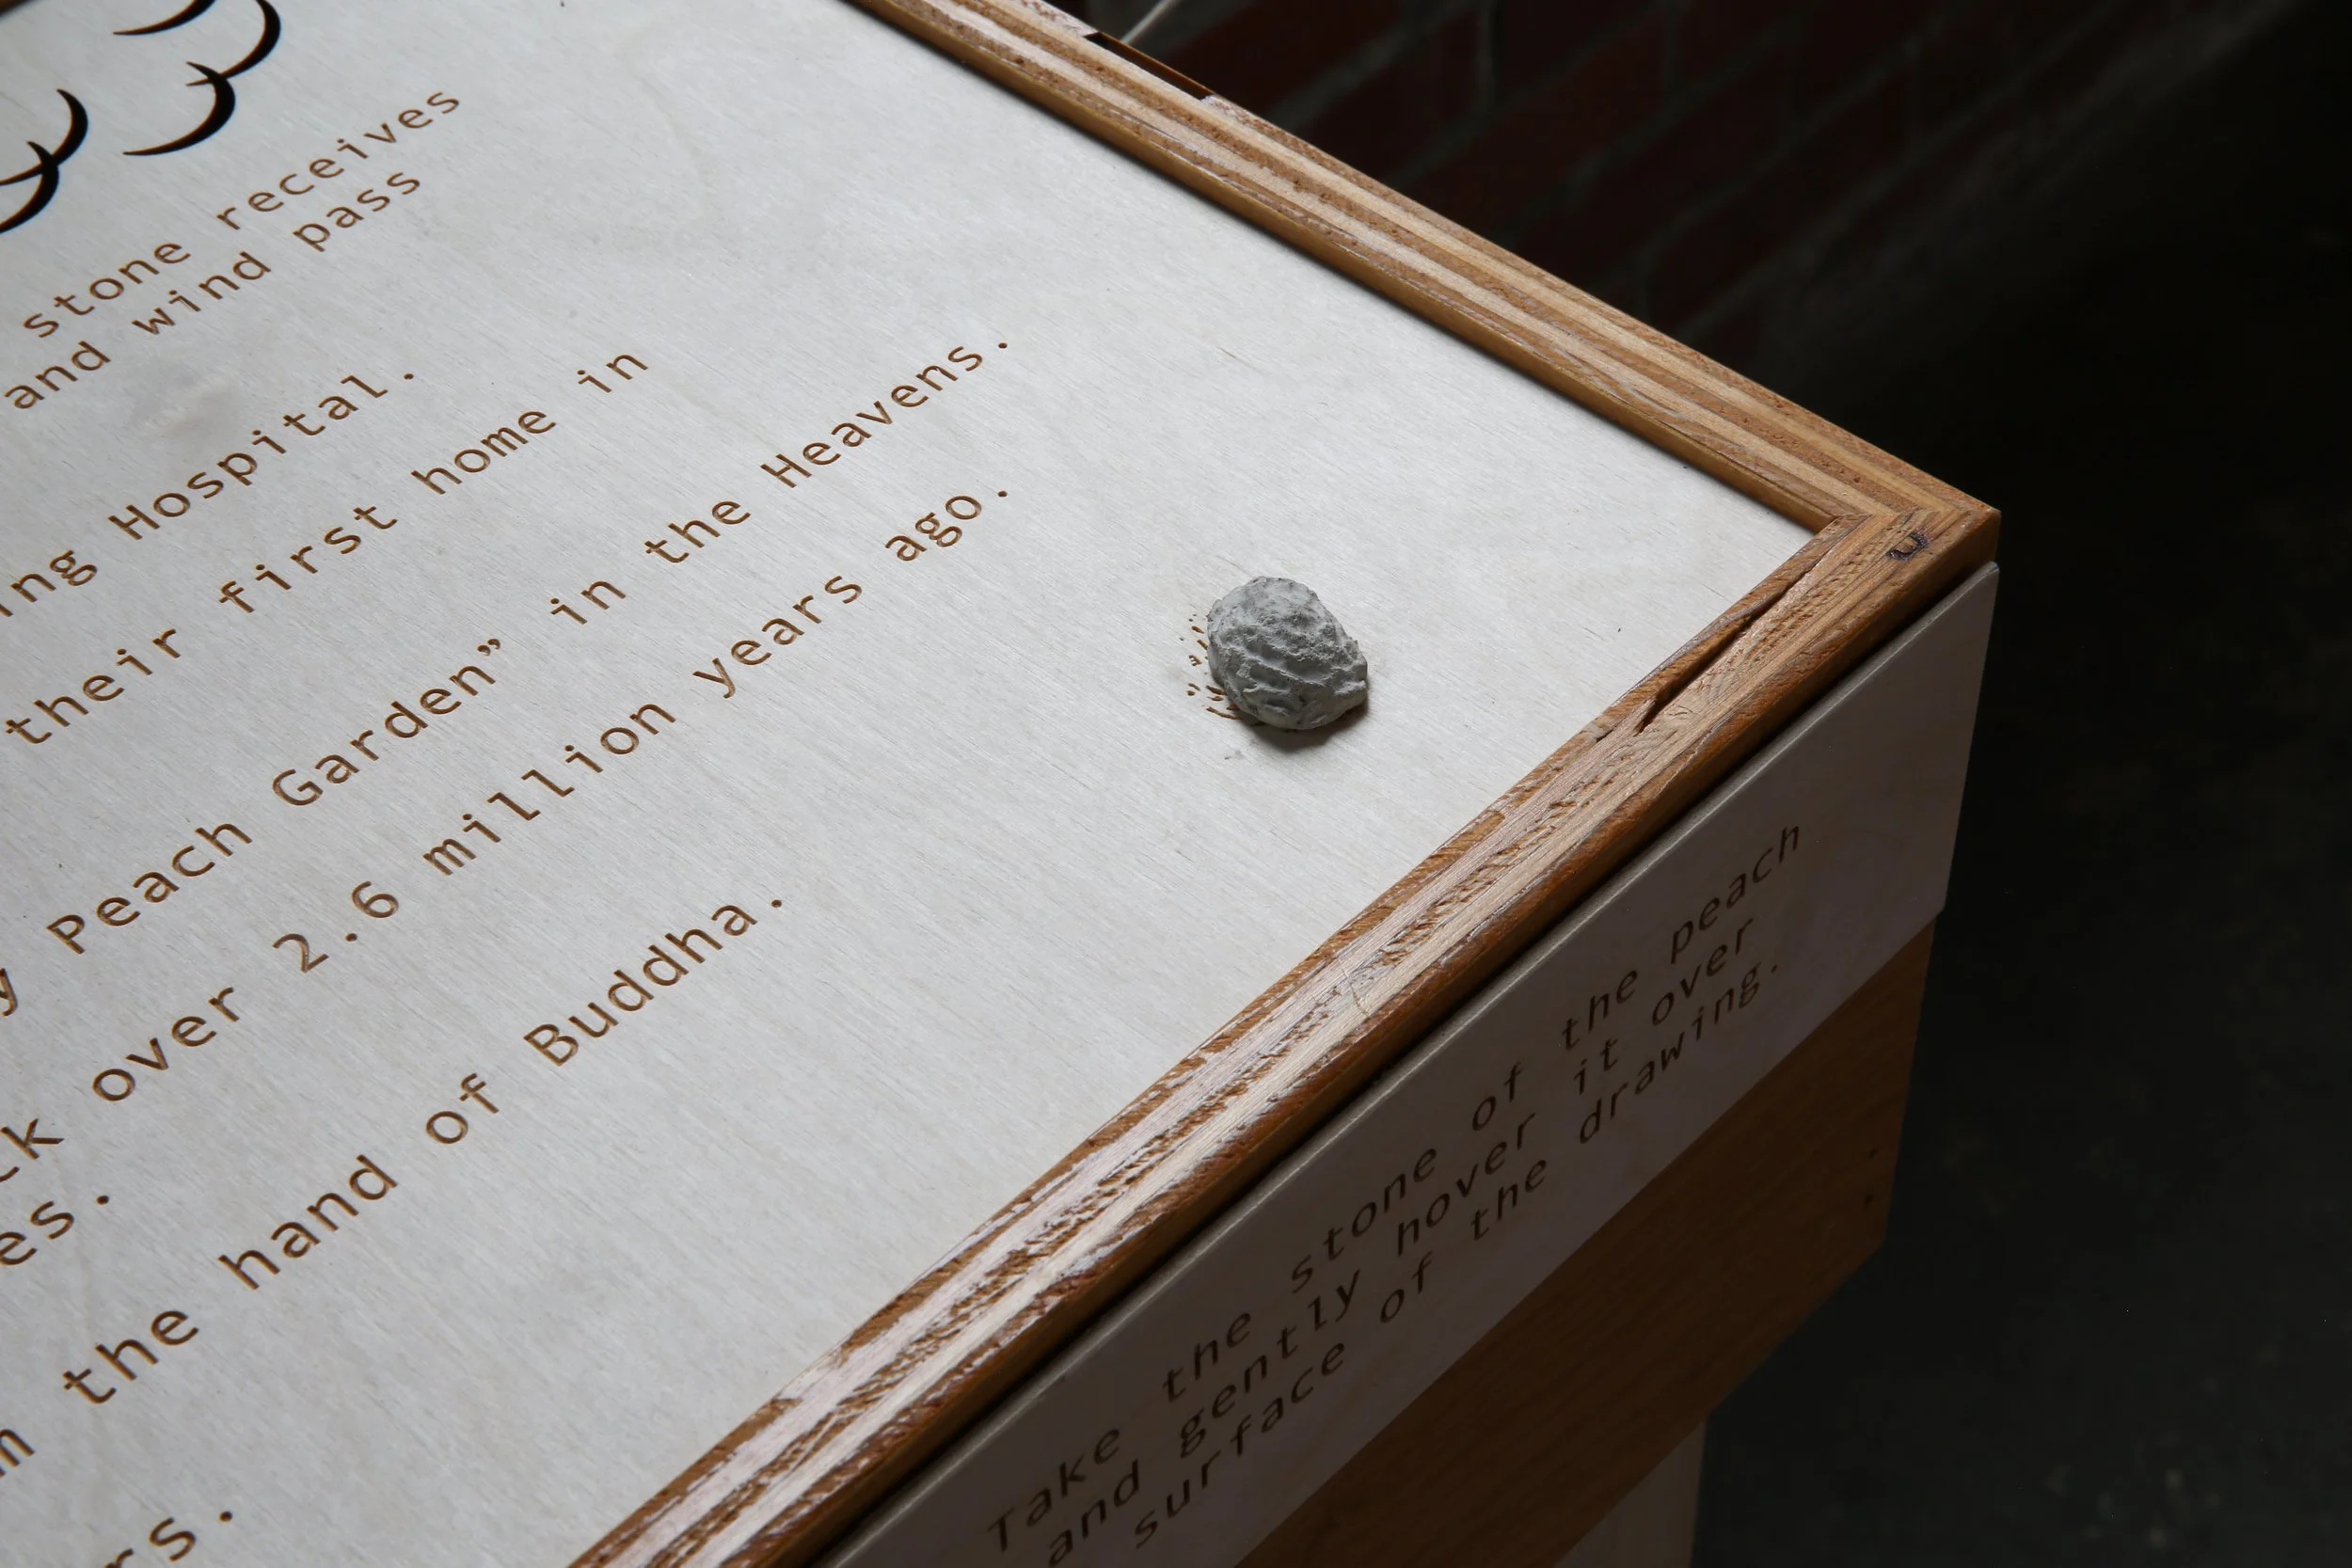 stone receives
and wind pass
Hospital.
their first home in
Peach Garden” in the Heavens.
over 2.6 million years ago.
the hand of Buddha.
Take the stone of the peach
and gently hover it over
surface of the drawing.